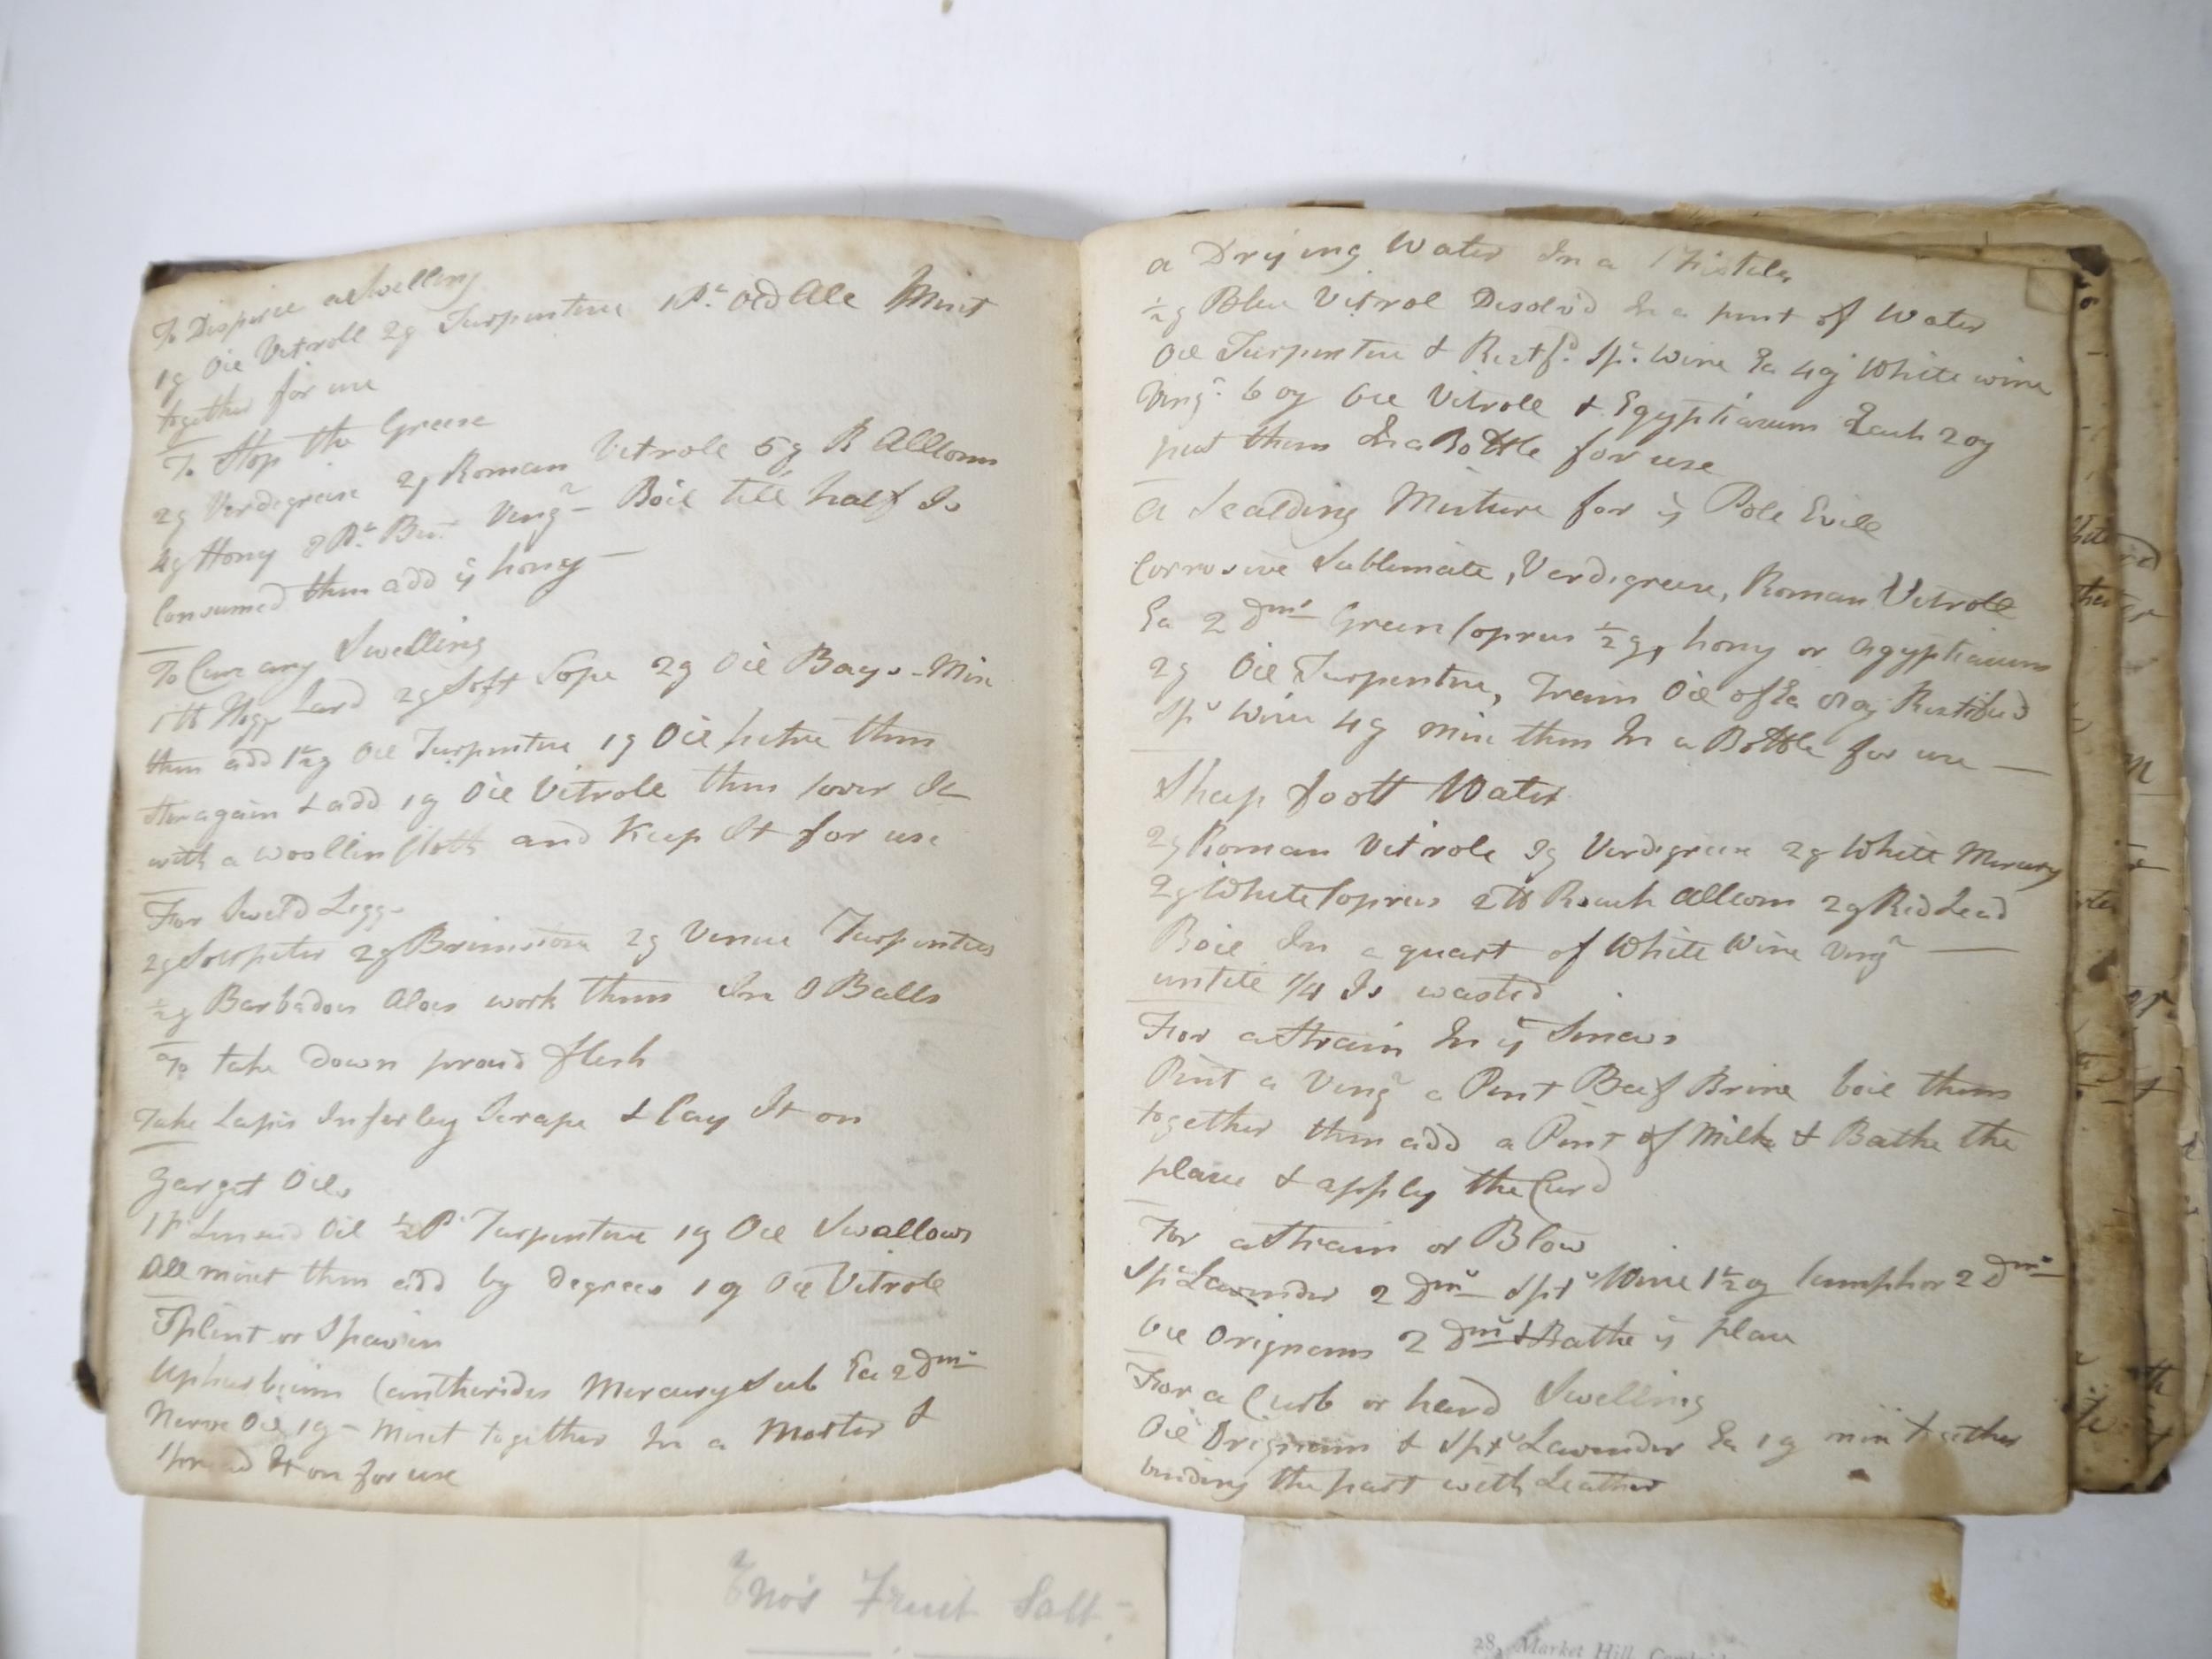 To Disperce a Swelling
1g Oil Vitroll 2g Turpentine 1 Pt Old Ale Mixt
together for use
To Stop the Grease
2g Verdegrease 2g Roman Vitrole 6g R Allom
4g Hony Pt Ving Boil till half Is
Consumed then add ye hony
To Cure any Swelling
1 lb Hogs Lard 2g Soft Sope 2g Oil Bays - Mix
them add 1½g Oil Turpentine 1g Oil petre then
Stir again & add 1g Oil Vitrole then Cover It
with a woollin Cloth and Keep It for use
For Sweld Leggs
2g Solt peter 2g Brimstone 2g Venice Turpentine
½g Barbadous Aloes work them In 8 Balls
To take down proud flesh
Take Lapis Inferley Scrape & Lay It on
Garget Oils
1 Pt Linseed Oil ½ P Turpentine 1g Oil Swallows
All mixt then add by degrees 1g Oil Vitrole
Splint or Spavin
Uphurbium Cantherides Mercury Sub Ea 2 Dms
Nerve Oil 1g - mixt together In a Morter &
Spread It on for use
a Drying Water In a Fistela
½g Blue Vitrol Desolvd In a pint of Water
Oil Turpentine & Rectfd Spt Wine Ea 4g White wine
Ving 6 og Oil Vitrole & Egyptiacum Each 2 og
put them In a Bottle for use
a Scalding Mixture for ye Pole Evill
Corrosive Sublimate, Verdigrease, Roman Vitroll
Ea 2 Dms Green Copress ½g, hony or agyptiacum
2g Oil Turpentine, Train Oil of Ea 8 og Rectified
Spt Wine 4g mix them In a Bottle for use
Sheep foott Water
2g Roman Vitrole 3g Verdigrease 2g White Mercury
2g White Copress 2 lb Roach Allom 2g Red Lead
Boil In a quart of White Wine Ving
untile 1/4 Is wasted
For a Strain In ye Sinews
Pint a Ving a Pint Beef Brine boil them
together then add a Pint of Milk & Bathe the
place & apply the Curd
For a Strain or Blow
Spt Lavender 2 Dms Spt Wine 1½ og Camphor 2 Dms
Oil Origneam 2 Dms & Bathe ye place
For a Curb or hard Swelling
Oil Origneum & Spt Lavender Ea 1g mix together
binding the part with Leather
Eno's Fruit Salt
28, Market Hill,